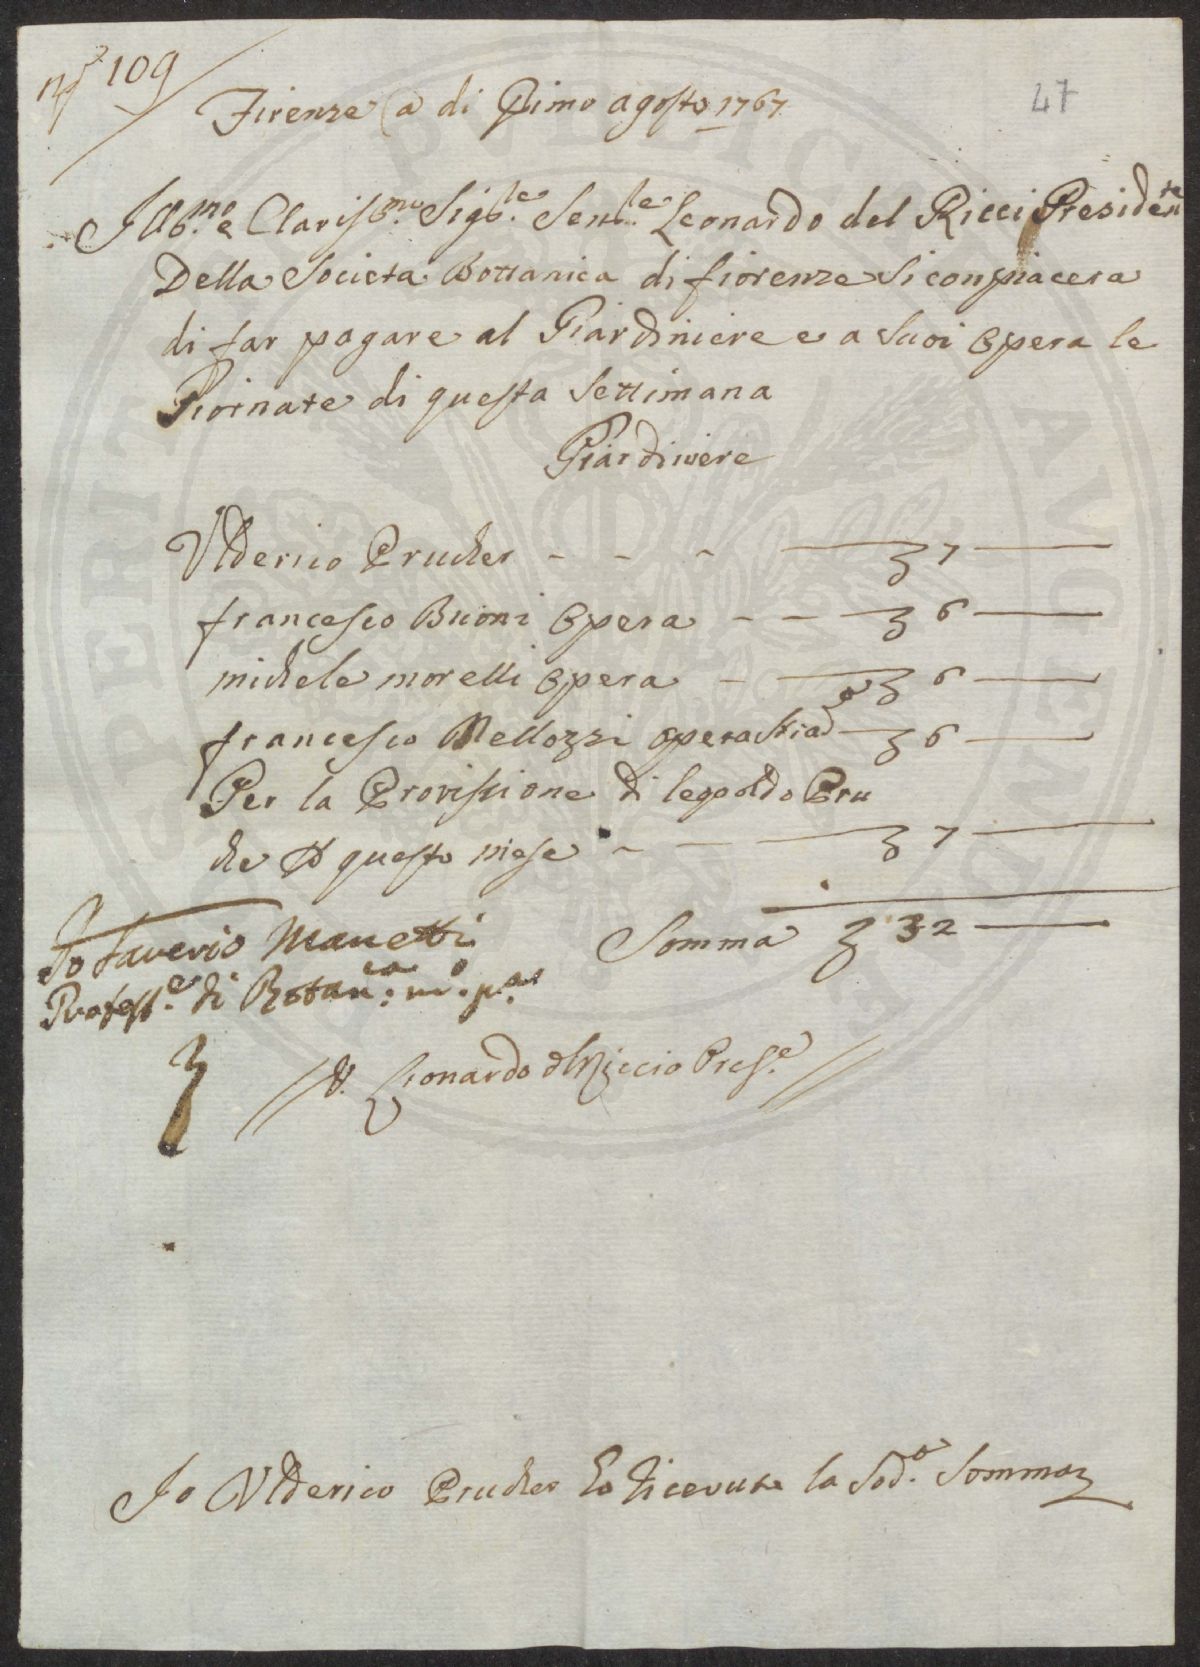 N° 109
47
Firenze a di Primo agosto 1767
Ill.mo e Clariss.mo Sig.re Sen.re Leonardo del Ricci Presidente
Della Societa Bottanica di fiorenze Si conpiacera
di far pagare al Giardiniere e a Suoi Opera le
Giornate di questa Settimana
Giardiniere
Vlderico Prucher - - - 7
francesco Buoni Opera - - 6
michele morelli Opera - 6
francesco Mellozzi opera 6
Per la Provissione di leopoldo Pru
che questo mese - - 7
Somma 32
Io Saverio Manetti
Profess.e di Botan.ca m.o p.a
V. Leonardo del Riccio Pres.e
Io Vlderico Prucher ho ricevute la Sod.a Somma